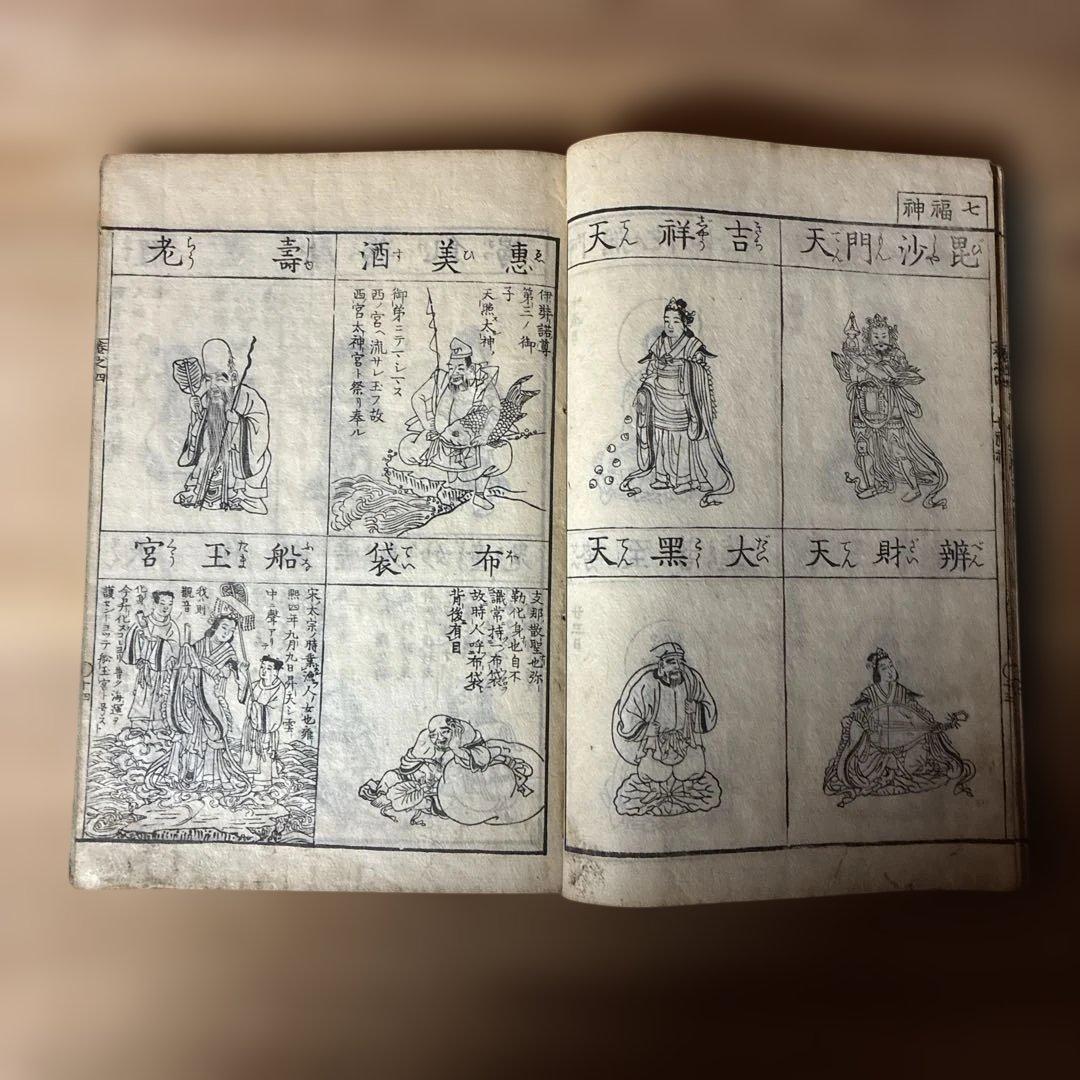 七福神
毘沙門天
吉祥天
辨財天
大黑天
惠美酒
伊弉諾尊
第三ノ御
子
天照太神ノ
御弟ニテマシマス
西ノ宮ヘ流サレ玉フ故
西宮太神宮ト祭リ奉ル
壽老
布袋
支那散聖也弥
勒化身也自不
識常持一布袋
故時人呼布袋
背後有目
船玉宮
宋太宗ノ時
熙四年九月九日昇天シ雲
中ニ聲アリテ
我ハ則
觀音
化身
巻之四